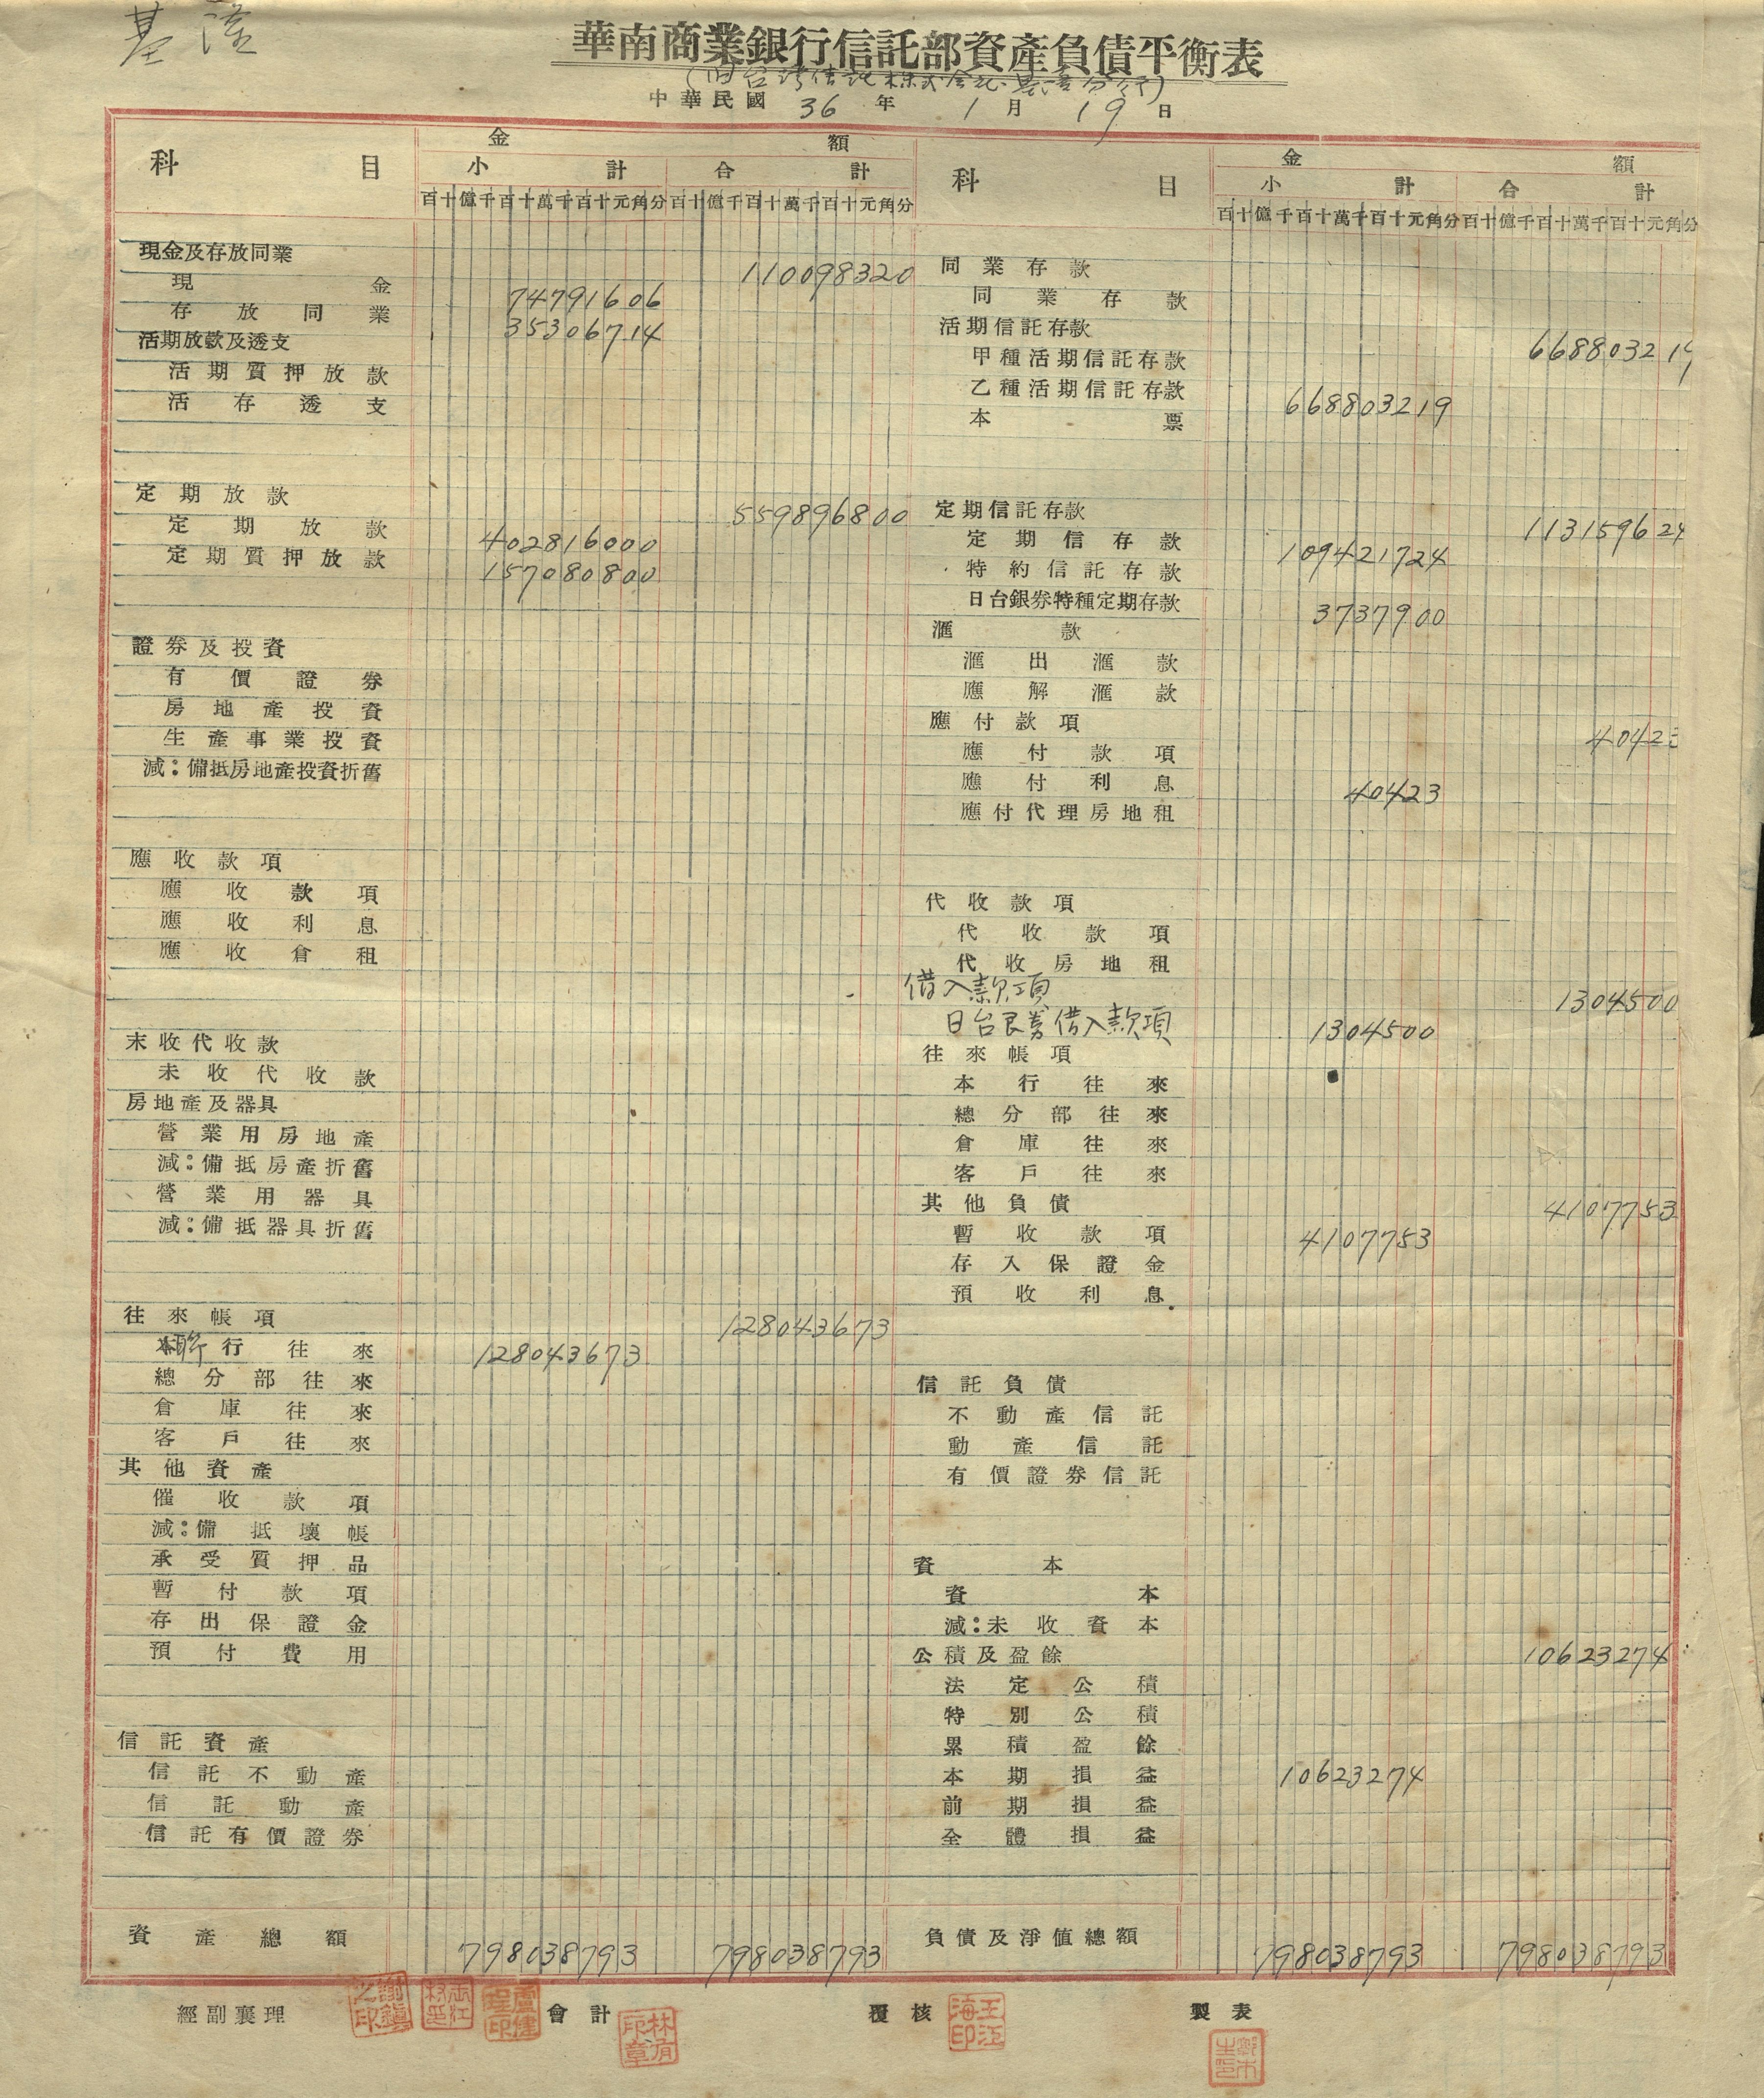 基隆
華南商業銀行信託部資產負債平衡表
(旧台湾信託株式会社基隆分行)
中華民國 36 年 1 月 19 日
科目 金額 科目 金額
小計 合計 小計 合計
百十億千百十萬千百十元角分 百十億千百十萬千百十元角分 百十億千百十萬千百十元角分 百十億千百十萬千百十元角分
現金及存放同業 110098320
現金 74791606
存放同業 35306714
活期放款及透支
活期質押放款
活存透支
定期放款 559896800
定期放款 402816000
定期質押放款 157080800
證券及投資
有價證券
房地產投資
生產事業投資
減：備抵房地產投資折舊
應收款項
應收款項
應收利息
應收倉租
未收代收款
未收代收款
房地產及器具
營業用房地產
減：備抵房產折舊
營業用器具
減：備抵器具折舊
往來帳項 128043673
聯行往來 128043673
總分部往來
倉庫往來
客戶往來
其他資產
催收款項
減：備抵壞帳
承受質押品
暫付款項
存出保證金
預付費用
信託資產
信託不動產
信託動產
信託有價證券
資產總額 798038793 798038793
同業存款
同業存款
活期信託存款 668803219
甲種活期信託存款
乙種活期信託存款 668803219
本票
定期信託存款 113159624
定期信存款 109421724
特約信託存款
日台銀券特種定期存款 3737900
滙款
滙出滙款
應解滙款
應付款項 40423
應付款項
應付利息 40423
應付代理房地租
代收款項
代收款項
代收房地租
借入款項 1304500
日台艮券借入款項 1304500
往來帳項
本行往來
總分部往來
倉庫往來
客戶往來
其他負債 4107753
暫收款項 4107753
存入保證金
預收利息
信託負債
不動產信託
動產信託
有價證券信託
資本
資本
減：未收資本
公積及盈餘 10623274
法定公積
特別公積
累積盈餘
本期損益 10623274
前期損益
全體損益
負債及淨值總額 798038793 798038793
經副襄理 會計 覆核 王江海印 製表